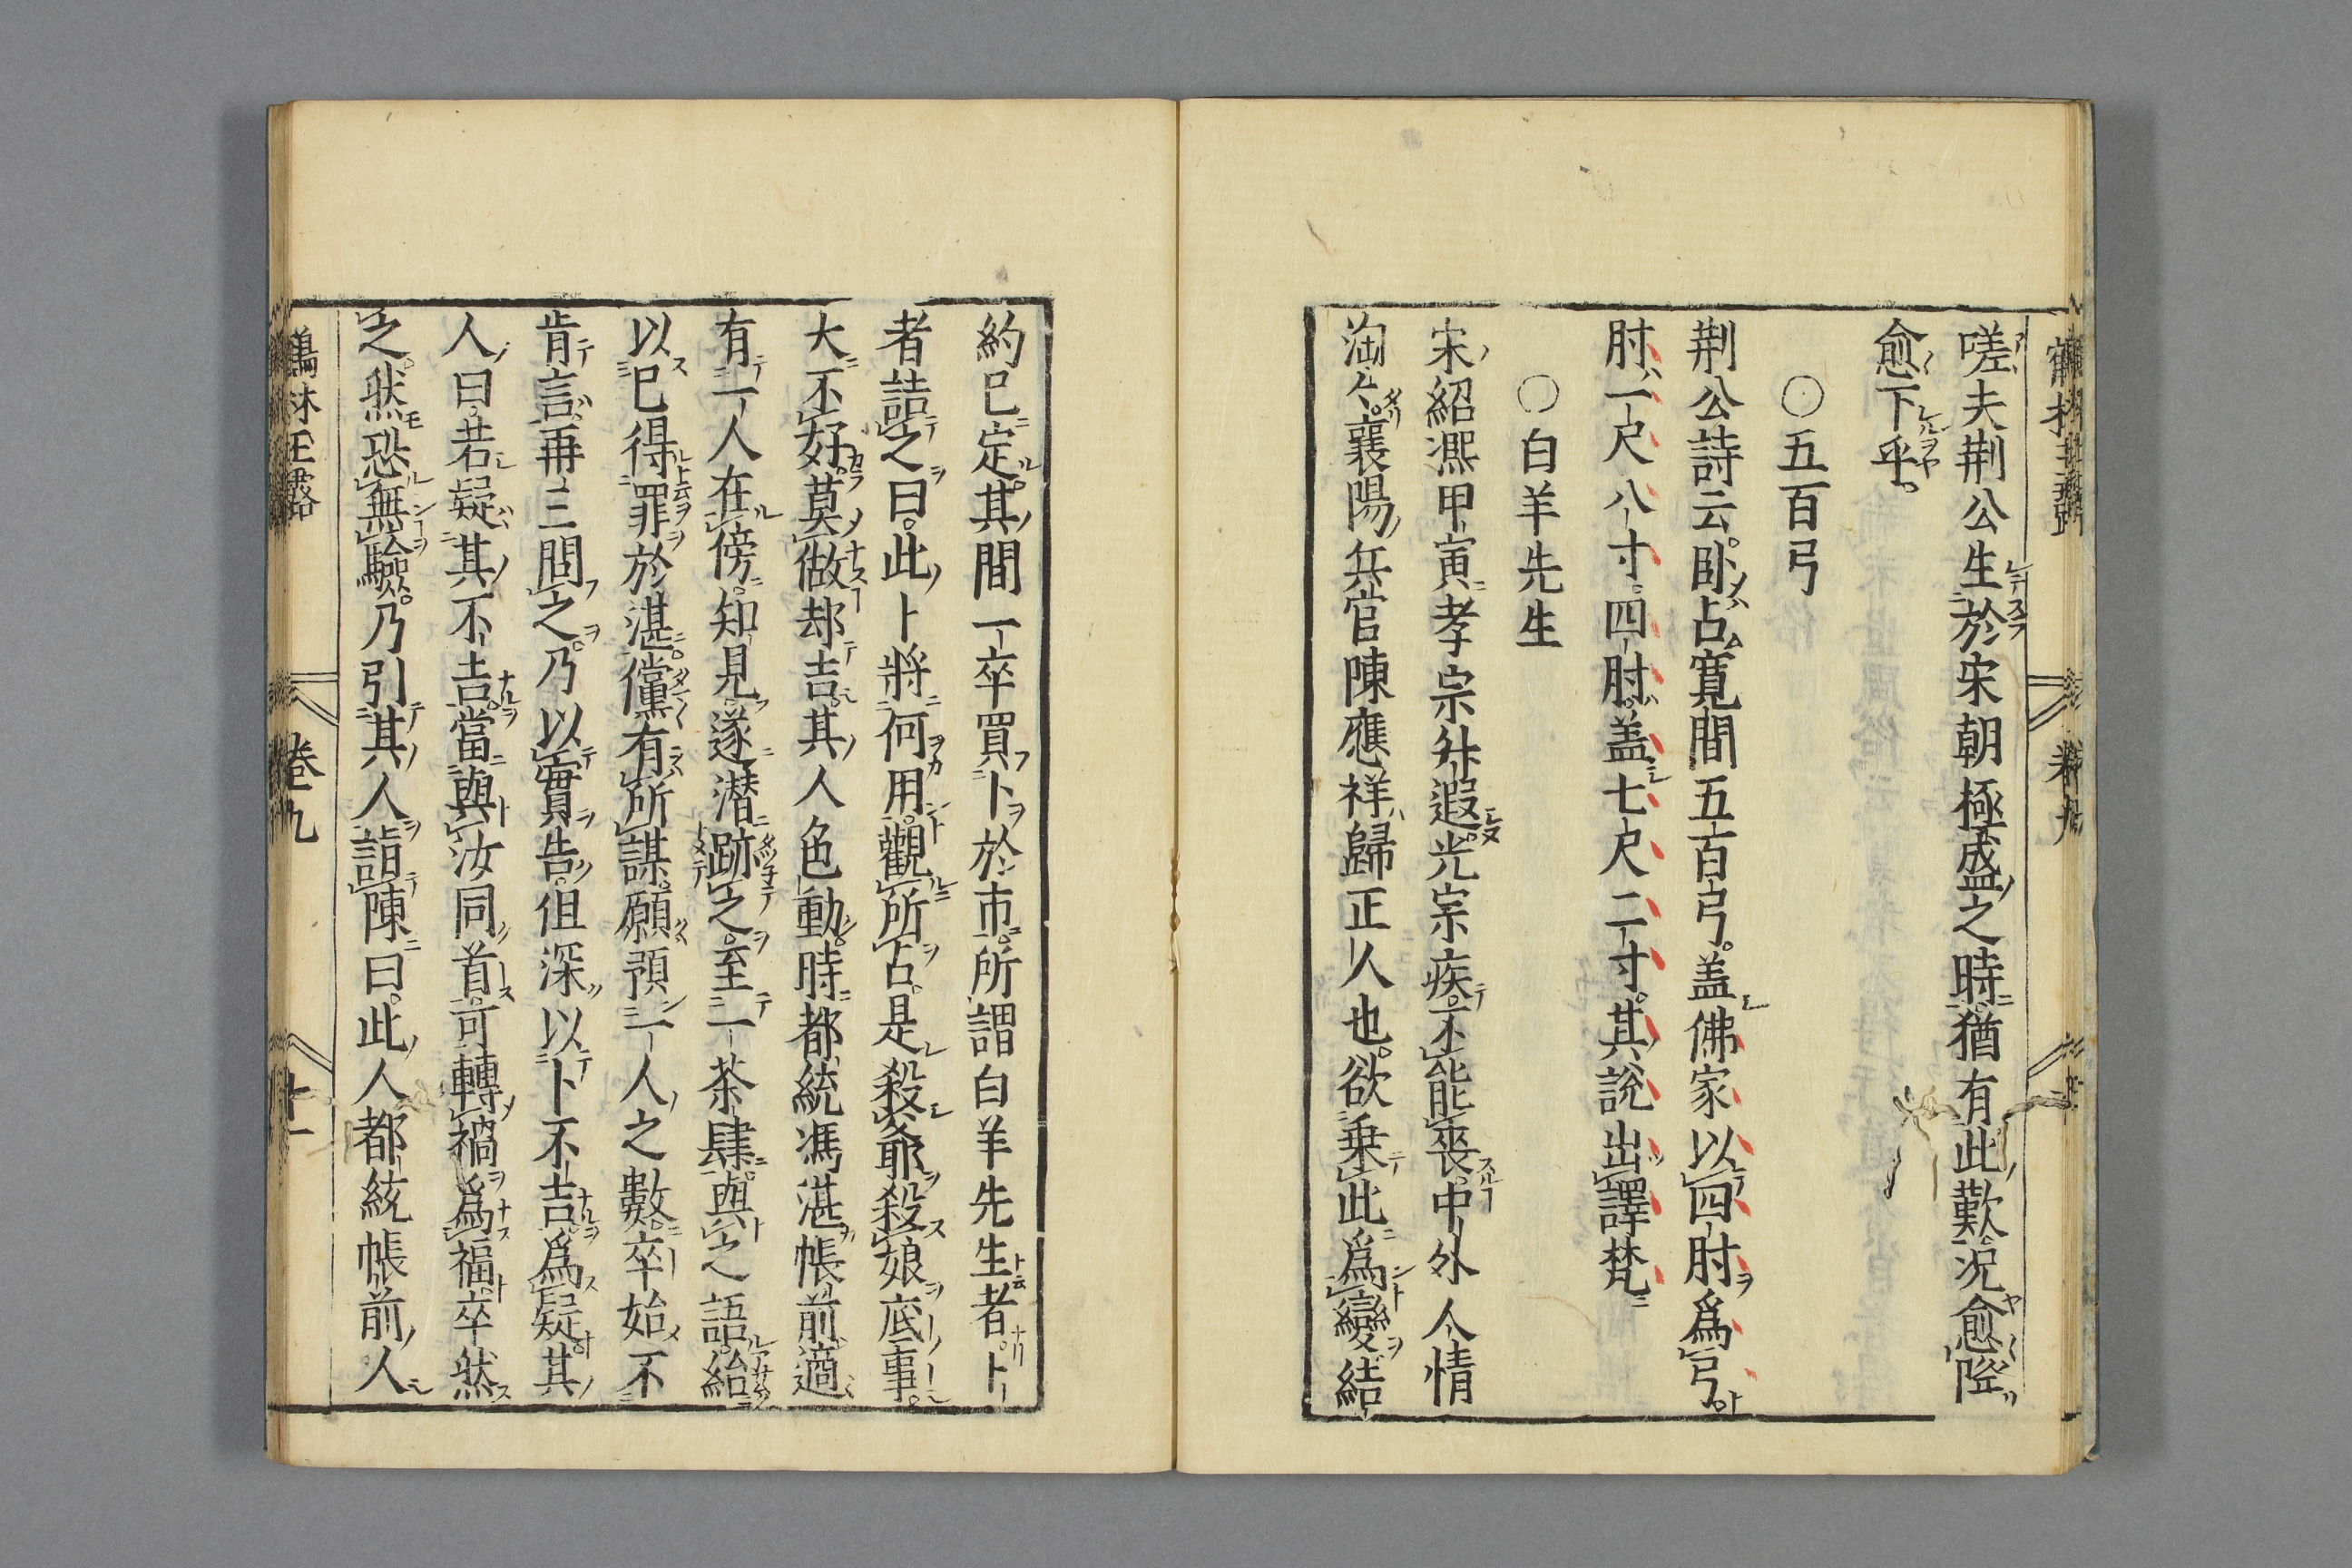 嗟夫荆公生於宋朝極盛之時猶有此歎況愈陞
愈下乎。
〇五百弓
荆公詩云。卧占寛間五百弓。盖佛家以四肘爲弓。
肘一尺八寸。四肘。盖七尺二寸。其說出譯梵。
〇白羊先生
宋紹凞甲寅孝宗升遐。光宗疾。不能喪。中外人情
洶々。襄陽兵官陳應祥歸正人也。欲乗此爲變。結
約已定。其間一卒買卜於市。所謂白羊先生者。卜
者詰之曰。此卜將何用。觀所占。是殺爺殺娘底事。
大不好。莫做却吉。其人色動。時都統馮湛帳前適
有一人在傍。知見。遂潜跡之。至一茶肆。與之語。紿
以已得罪於湛。儻有所謀。願預一人之數。卒始不
肯言。再三問之。乃以實告。但深以卜不吉。爲疑。其
人曰。若疑其不吉。當與汝同首。可轉禍爲福。卒然
之。然恐無驗。乃引其人詣陳曰。此人都統帳前人
鶴林玉露
卷九
十一